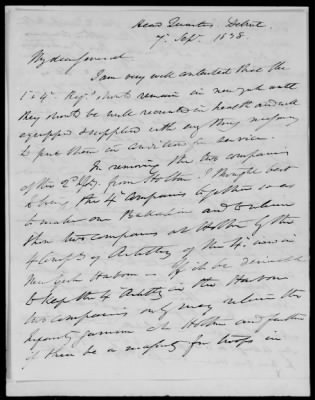 Head Quarters, Detroit
7. Sept. 1838.
My dear General
I am very well satisfied that the
1 & 4. Regt. should remain in new york until
they should be well recruited in health and well
equipped & supplied with every thing necessary
to put them in condition for service.
In removing the two companies
of the 2d from Houlton. I thought best
to bring the 4 companies together so as
to make one Battalion and to relieve
these two companies at Houlton by the
4 comps of Artillery of the 4. now in
New York Harbor. If it be desirable
to keep the 4 Artillery in the Harbor
two companies only may relieve the
Infantry garrison at Houlton and further
if there be a necessity for troops in